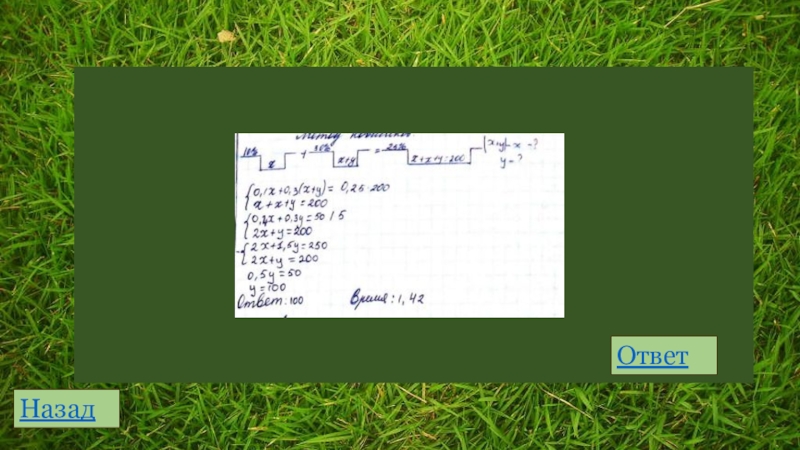 10% x + 30% x+y = 25% x+x+y=200 (x+y)-x=?
y=?
0,1x+0,3(x+y)=0,25·200
x+x+y=200
0,4x+0,3y=50 | 5
2x+y=200
2x+1,5y=250
2x+y=200
0,5y=50
y=100
Ответ: 100 Время: 1,42
Ответ
Назад